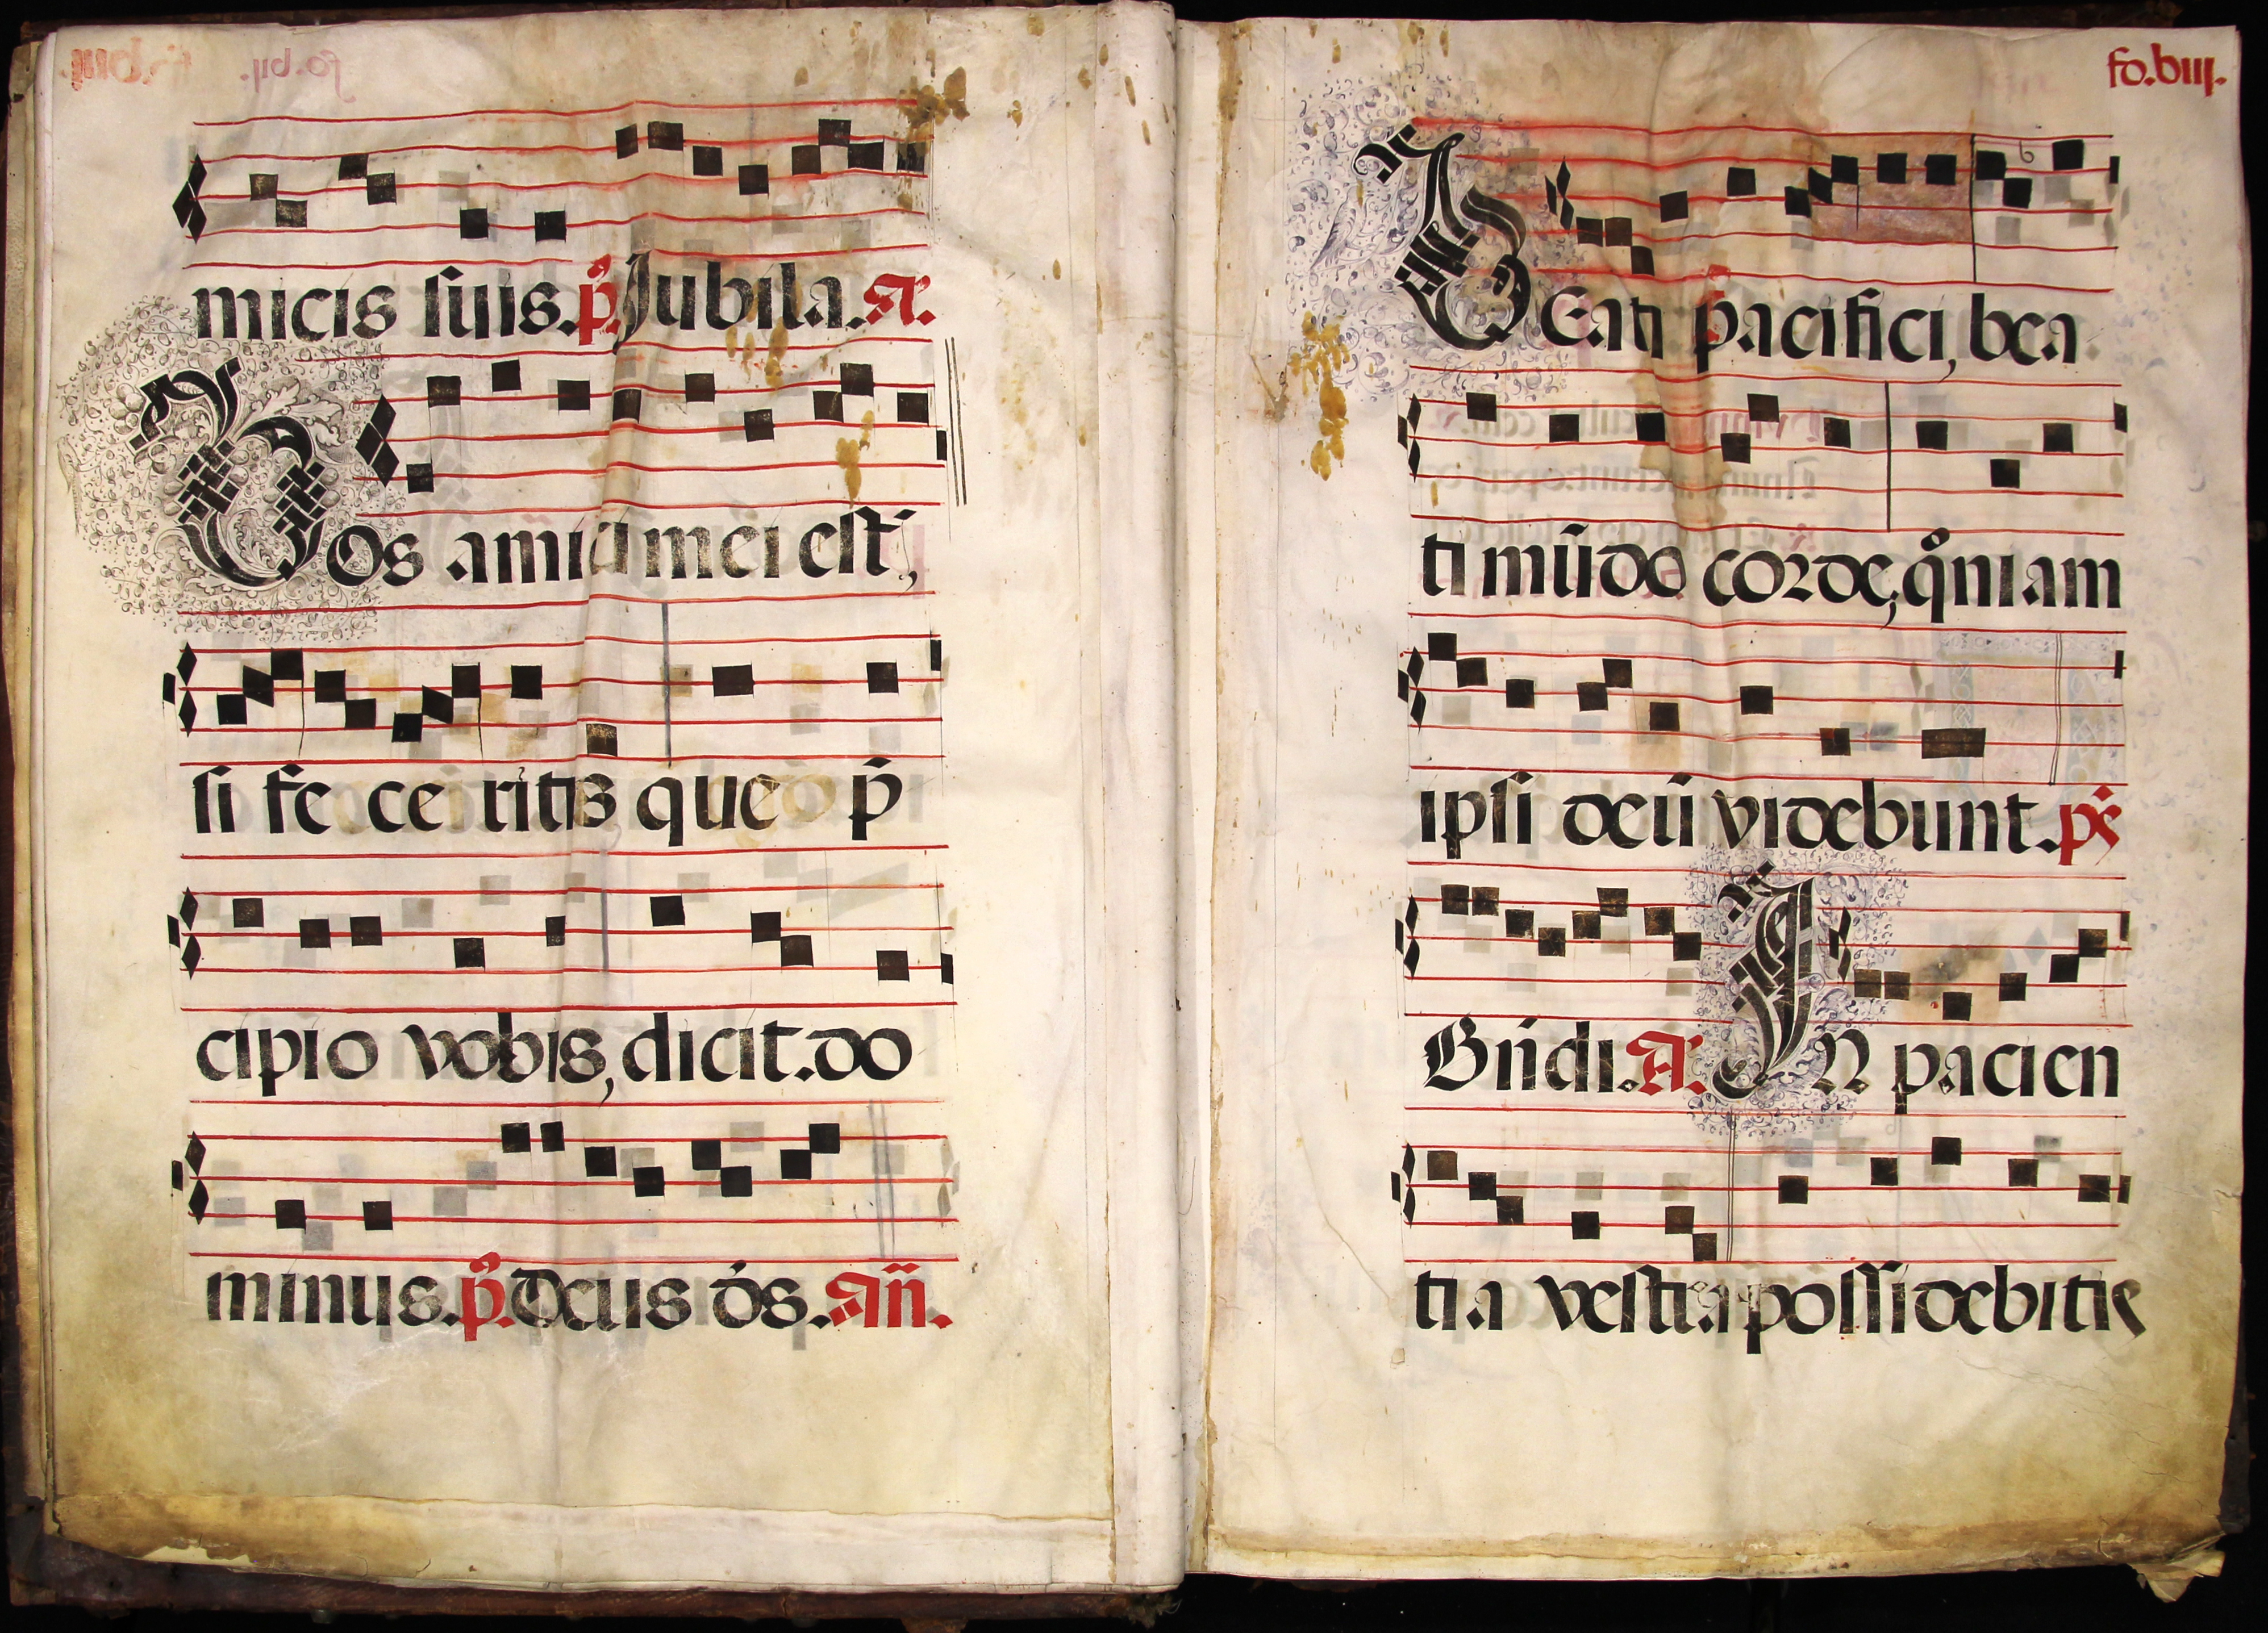 micis suis. p̃. Jubila. A.
Vos amici mei est̃,
si feceritis que p̃
cipio vobis, dicit. do
minus. p̃. Deus ds̃. Añ.
fo. biij.
BEati pacifici, bea
ti mũdo corde, qoniam
ipsi deũ videbunt. ps̃
Bñdi. A. IN pacien
tia vestra possidebitis